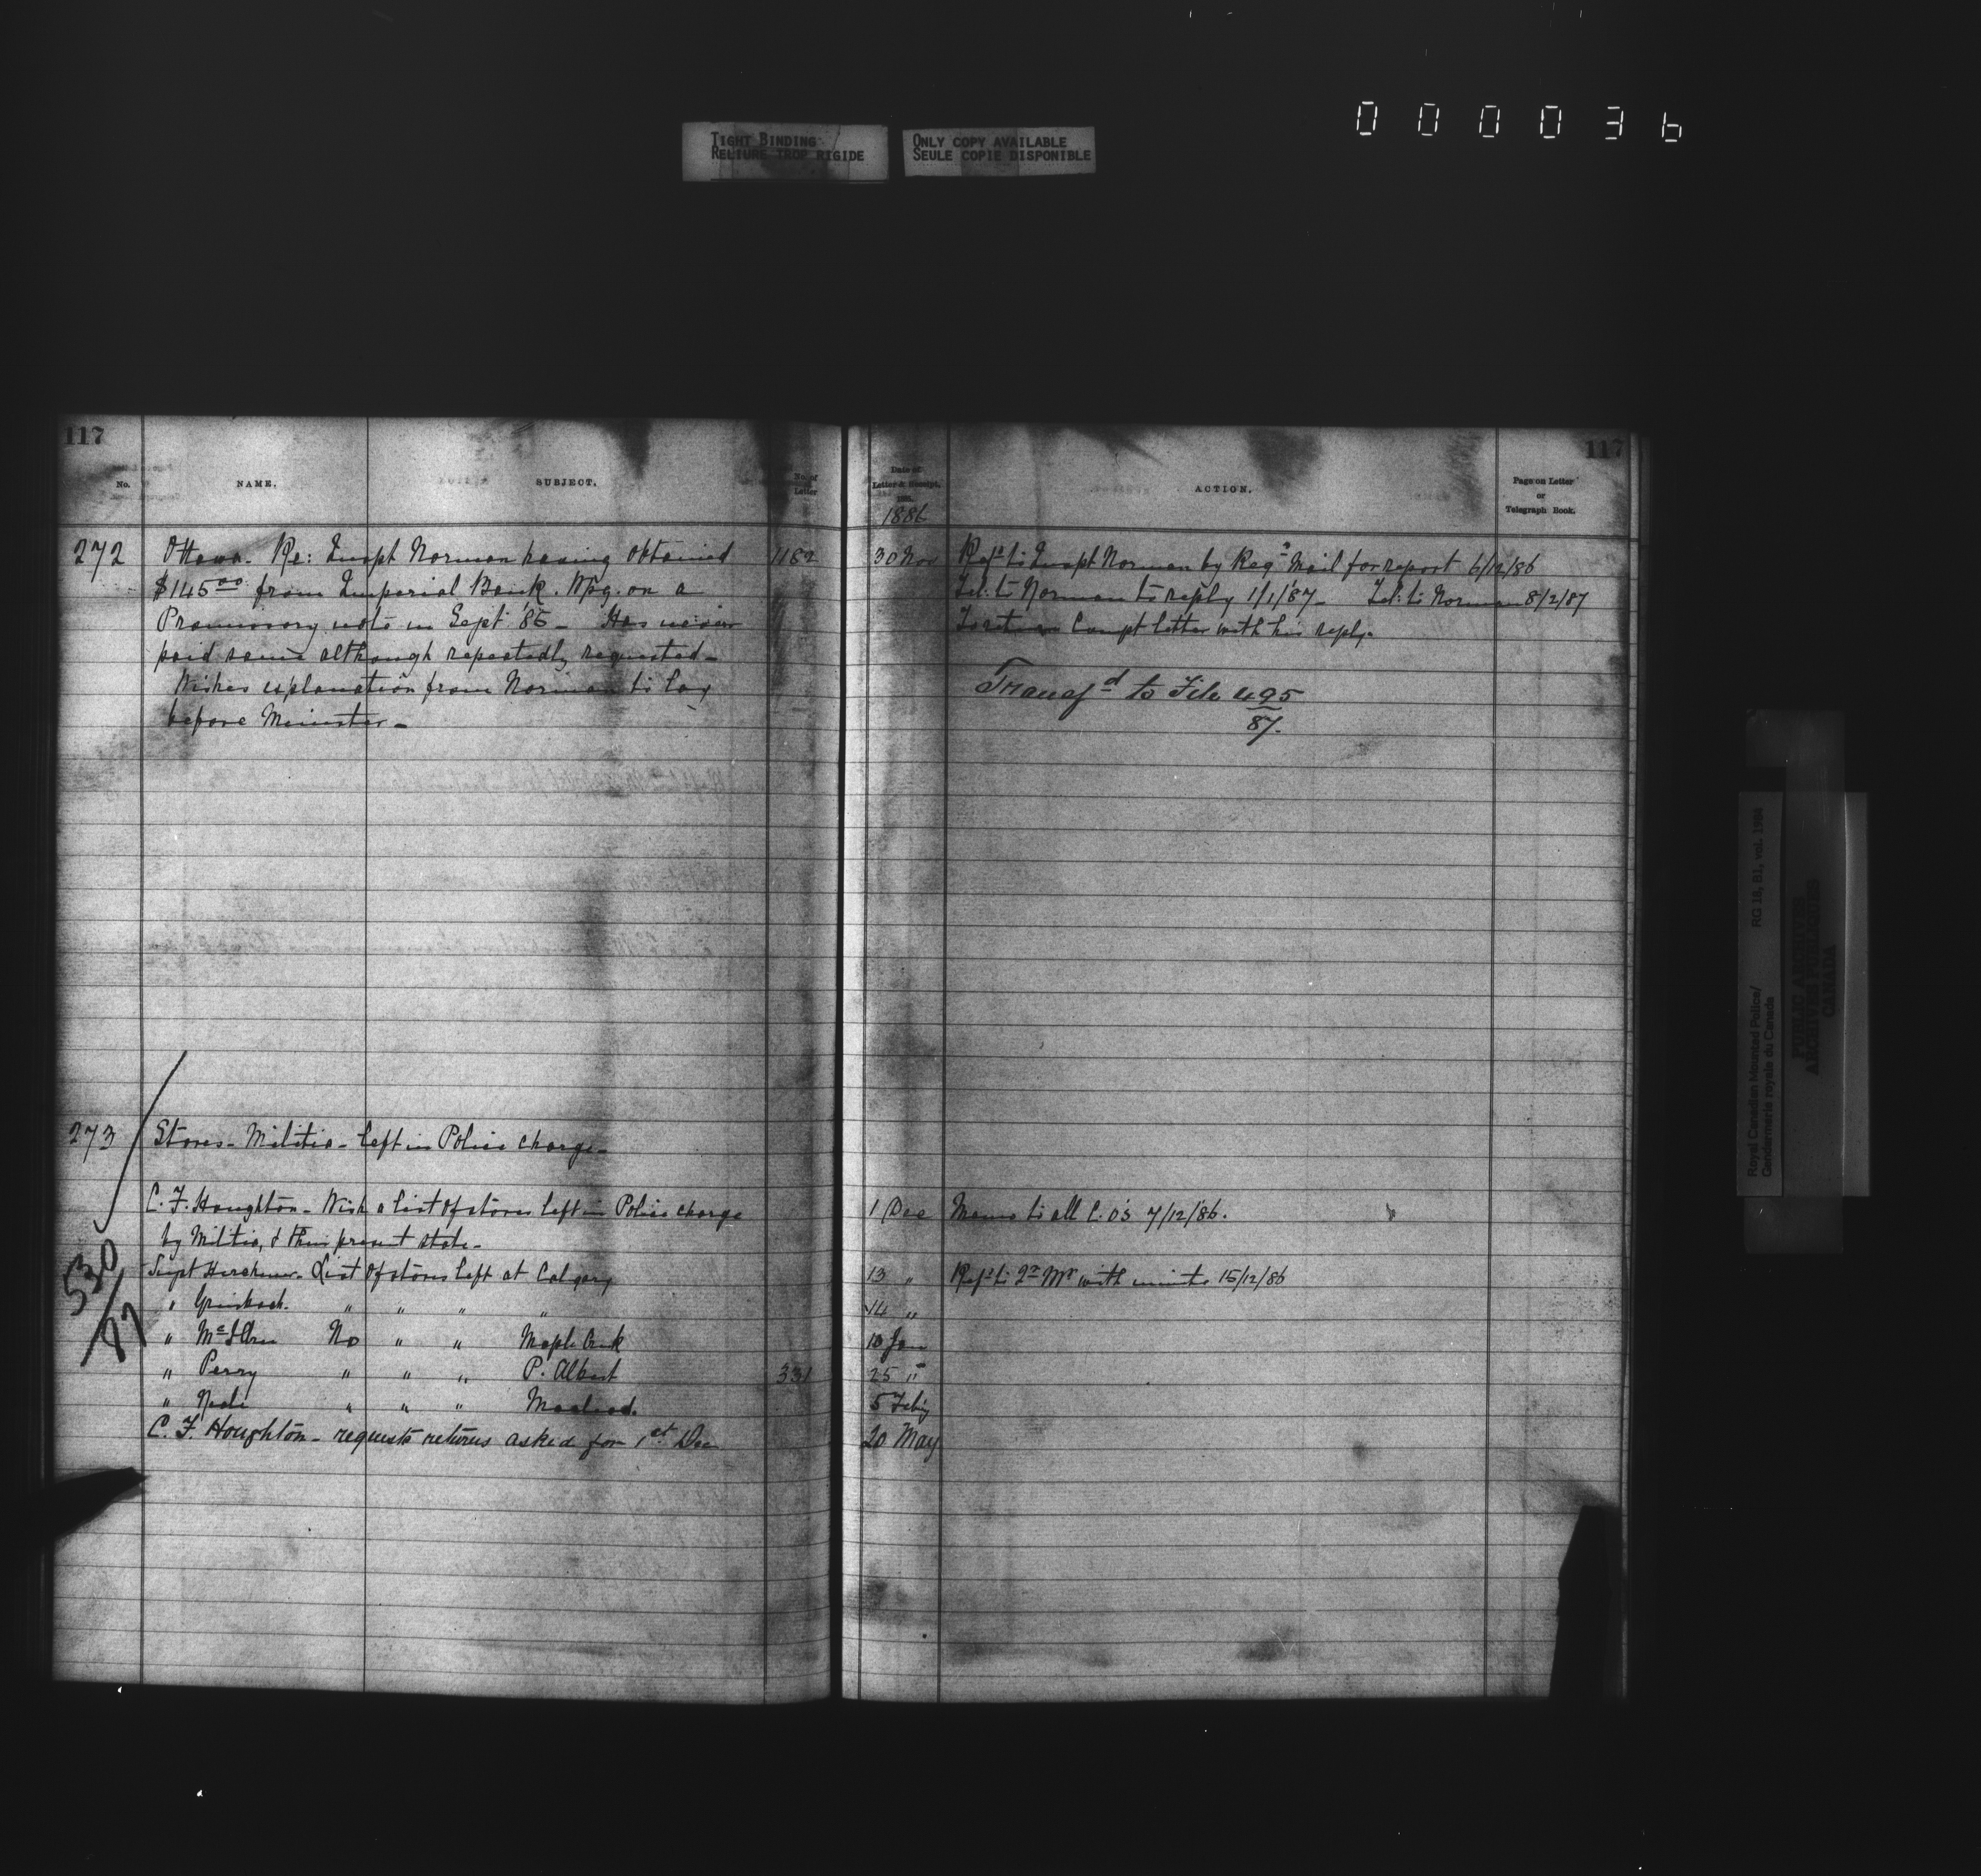 000036
TIGHT BINDING
RELIURE TROP RIGIDE
ONLY COPY AVAILABLE
SEULE COPIE DISPONIBLE
117
No.
NAME.
SUBJECT.
No. of Letter
272
Ottawa. Re: Inspt Norman having obtained
1182
$145.00 from Imperial Bank. Wpg. on a
Promissory note in Sept '85 - Has never
paid same although repeatedly requested -
Wishes explanation from Norman to lay
before Minister -
273
Stores - Militia - left in Police charge -
C. F. Houghton - Wish a list of stores left in Police charge
by Militia, & their present state -
530
87
Supt Herchmer. List of stores left at Calgary
" Griesbach. " " " "
" McIllree No " " Maple Creek
" Perry " " " P. Albert
331
" Neale " " " Macleod.
C. F. Houghton - requests returns asked for 1st Dec
117
Date of
Letter & Receipt.
1886
ACTION.
Page on Letter
or
Telegraph Book.
30 Nov
Refd to Inspt Norman by Regd Mail for report 6/12/86
Tel: to Norman to reply 1/1/87 - Tel: to Norman 8/2/87
To return Compt letter with his reply.
Transfd to File 495
87.
1 Dec
Memo to all C. O's 7/12/86.
13 "
Refd to Qr Mr with minute 15/12/86
14 "
10 Jan
25 "
5 Feby
20 May
Royal Canadian Mounted Police/
Gendarmerie royale du Canada
RG 18, B1, vol. 1984
PUBLIC ARCHIVES
ARCHIVES PUBLIQUES
CANADA